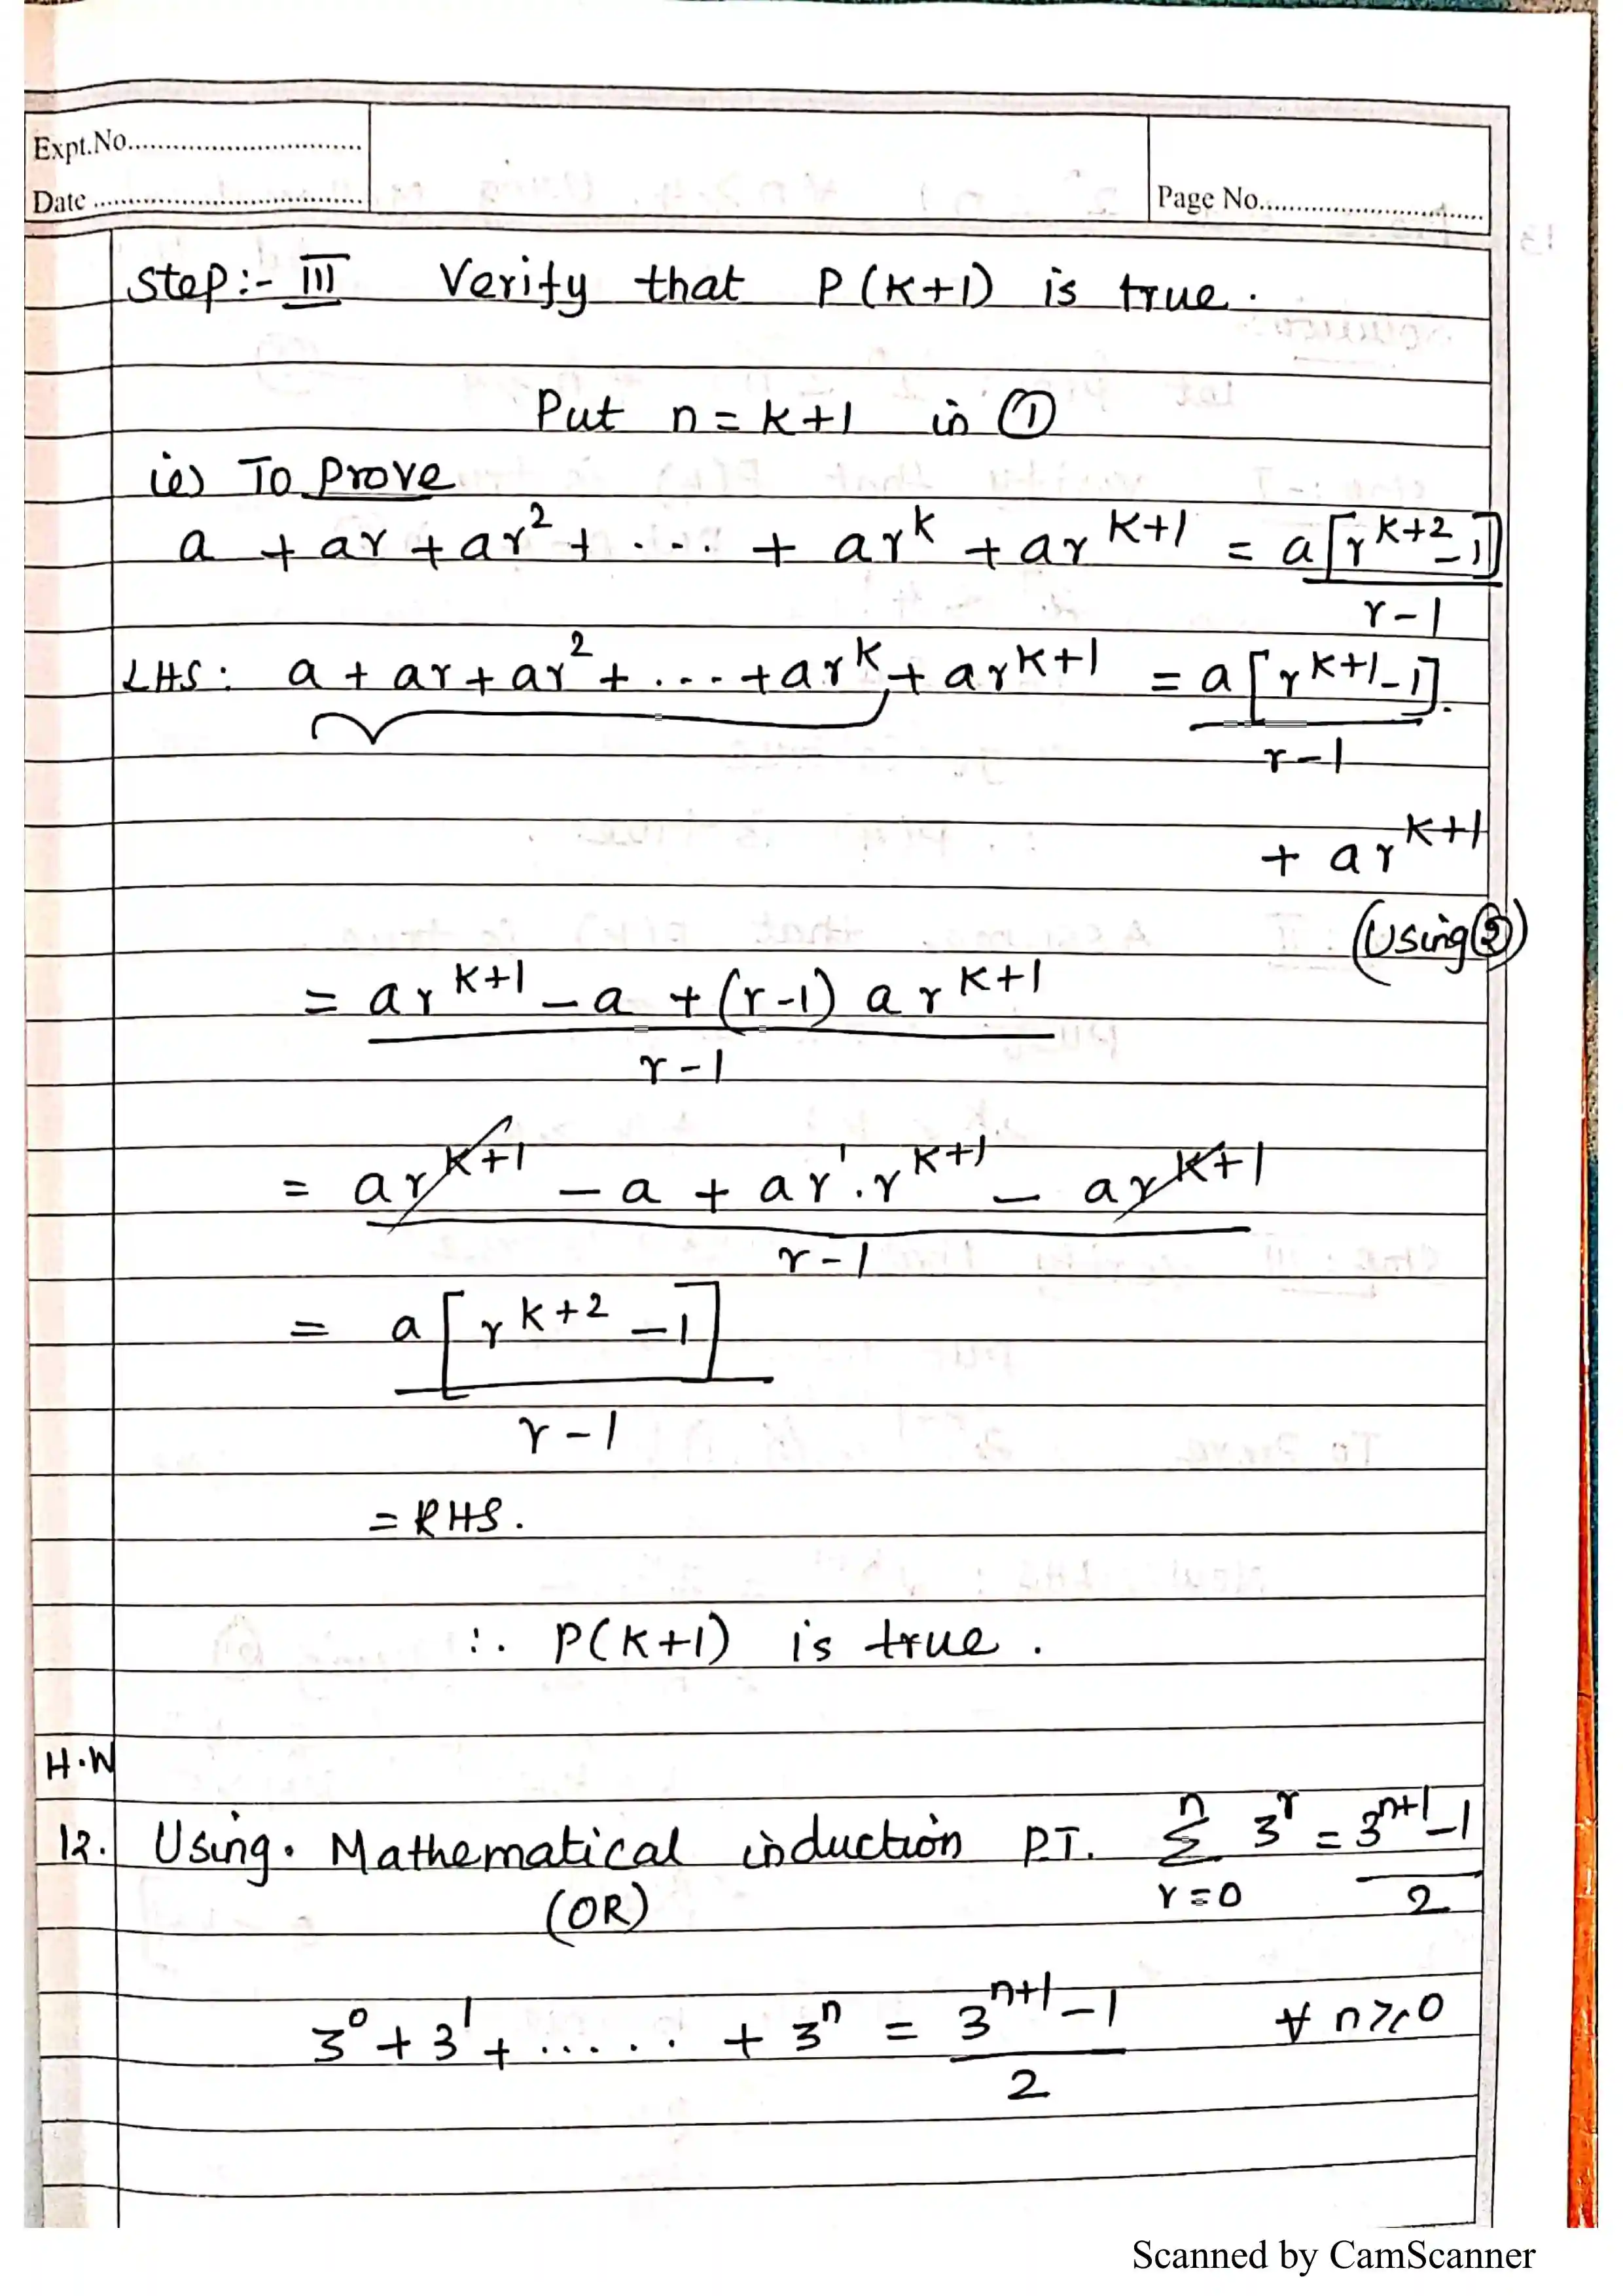 Expt.No..............................
Date ....................................
Page No..............................
Step:- III Verify that P(K+1) is true.
Put n = K+1 in ①
ie) To Prove
a + ar + ar² + ... + ar^k + ar^(K+1) = a[r^(K+2) - 1] / r-1
LHS: a + ar + ar² + ... + ar^k + ar^(K+1) = a[r^(K+1) - 1]. / r-1
+ ar^(K+1)
(Using ②)
= ar^(K+1) - a + (r-1) ar^(K+1) / r-1
= ar^(K+1) - a + ar¹.r^(K+1) - ar^(K+1) / r-1
= a[r^(K+2) - 1] / r-1
= RHS.
∴ P(K+1) is true.
H.W
12. Using. Mathematical induction P.T. n Σ r=0 3^r = 3^(n+1) - 1 / 2
(OR)
3⁰ + 3¹ + ..... + 3^n = 3^(n+1) - 1 / 2 ∀ n ≥ 0
Scanned by CamScanner